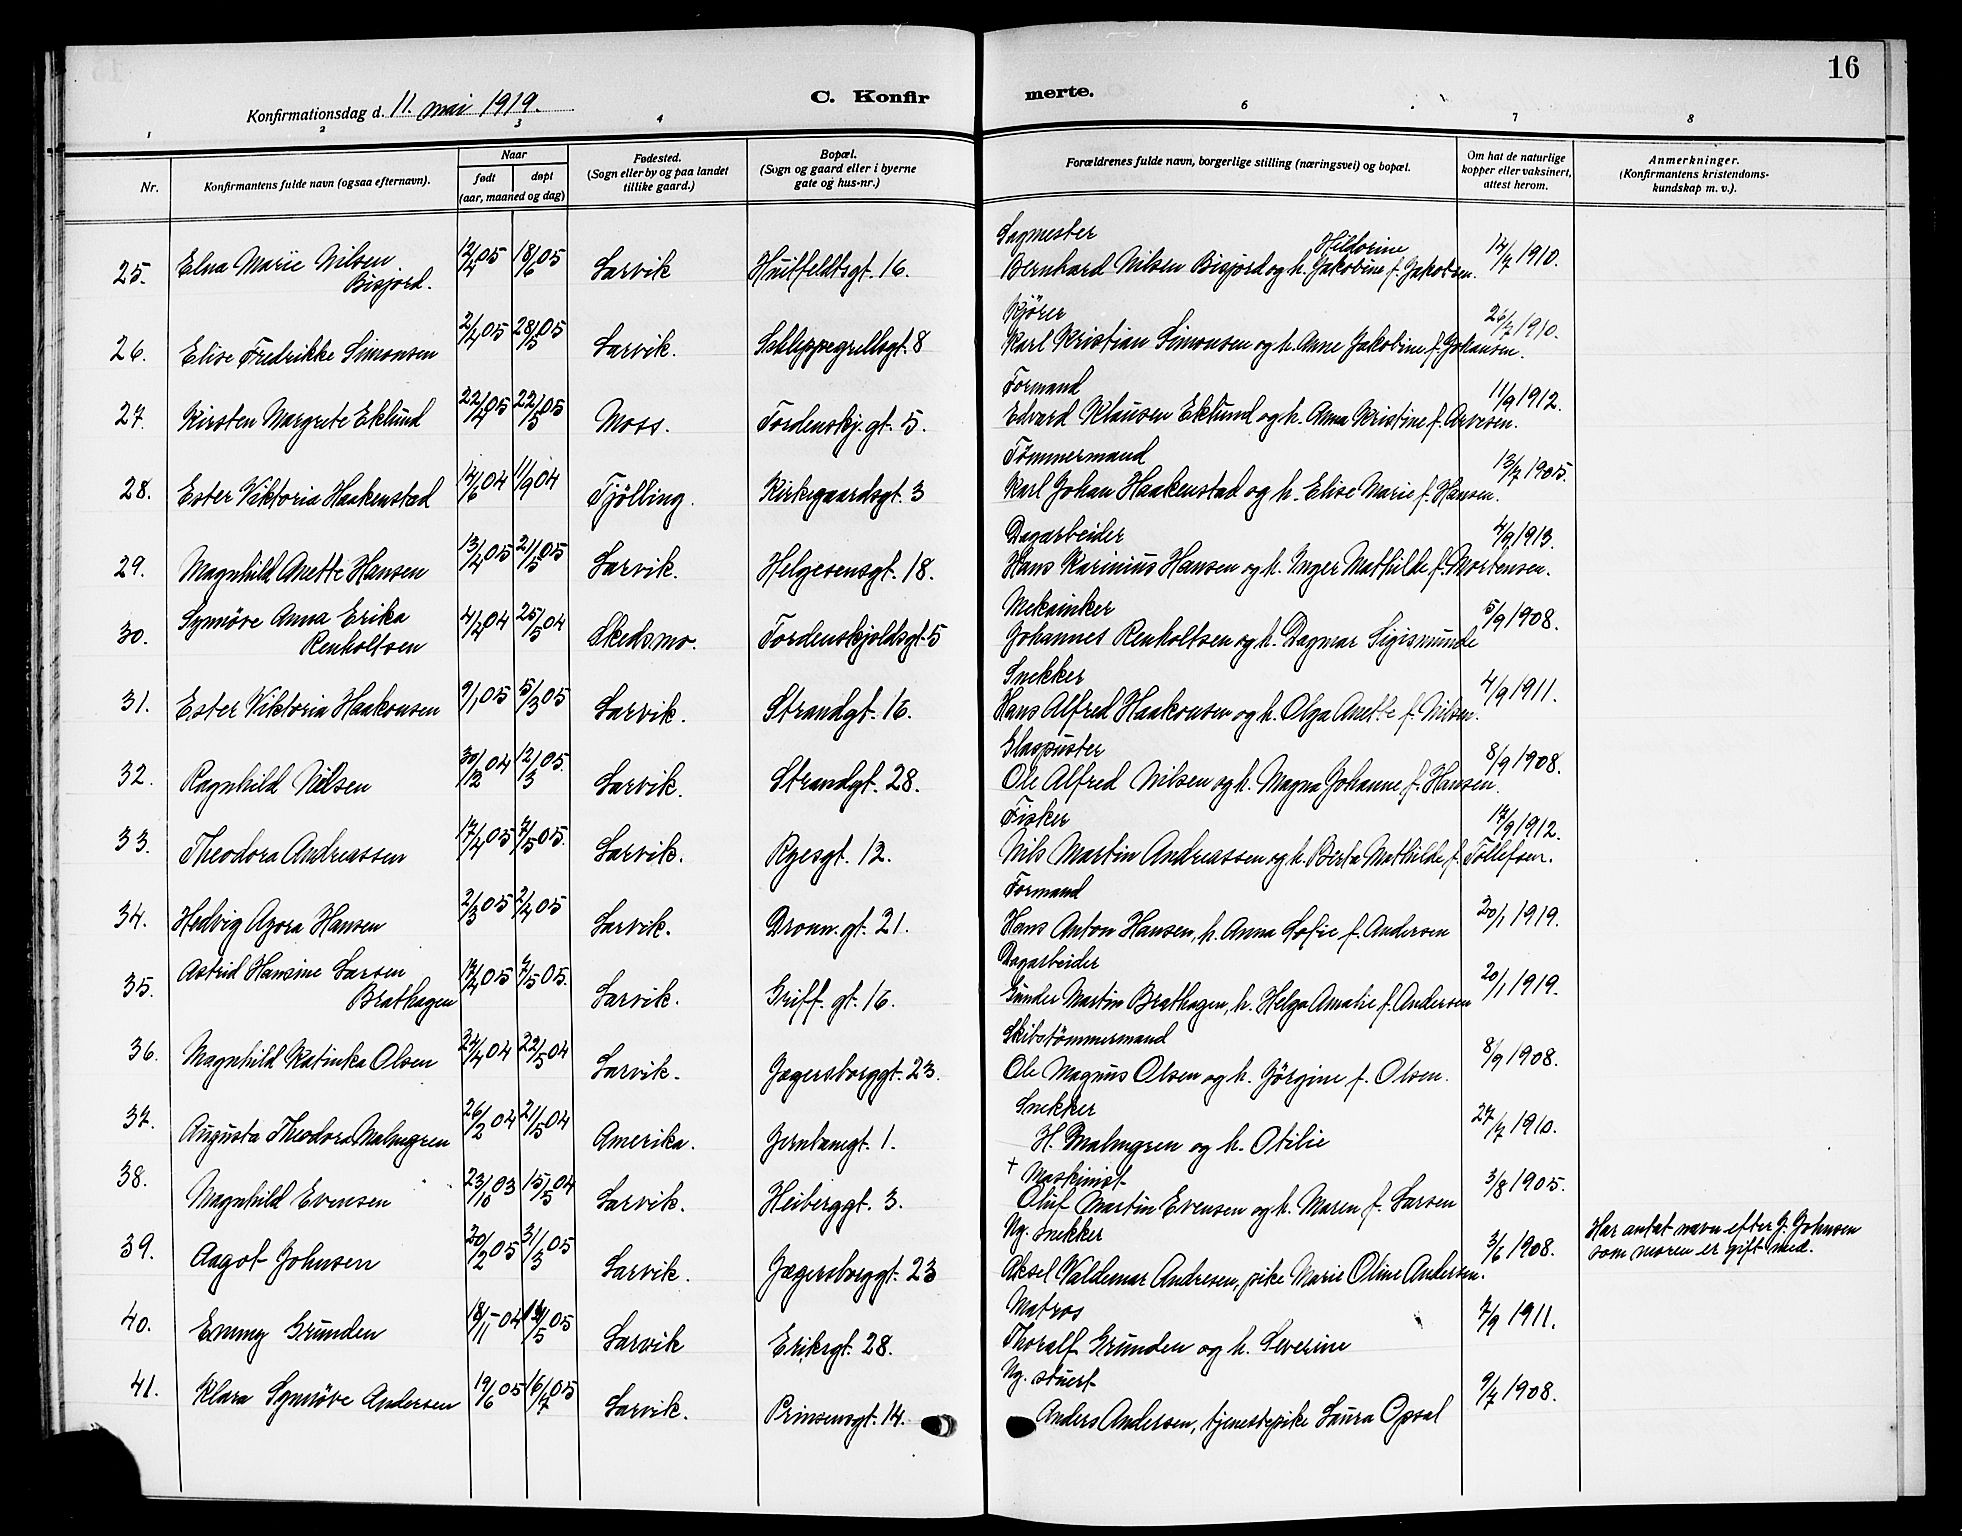 16
Konfirmationsdag d. 11. mai 1919.
C. Konfirmerte.
1 2 3 4 6 7 8
Nr. Konfirmantens fulde navn (ogsaa efternavn). Naar født døpt (aar, maaned og dag) Fødested. (Sogn eller by og paa landet tillike gaard.) Bopæl. (Sogn og gaard eller i byerne gate og hus-nr.) Forældrenes fulde navn, borgerlige stilling (næringsvei) og bopæl. Om hat de naturlige kopper eller vaksinert, attest herom. Anmerkninger. (Konfirmantens kristendomskundskap m. v.).
25. Elna Marie Nilsen Bisjord. 12/4 05 18/6 05 Larvik Huitfeldtsgt. 16. Sagmester Bernhard Nilsen Bisjord og h. Hildorine Jakobine f. Jakobsen. 14/7 1910.
26. Elise Fredrikke Simonsen 2/4 05 28/5 05 Larvik. Schleppegrellsgt. 8 Kjører Karl Kristian Simonsen og h. Anne Jakobine f. Johansen. 26/7 1910.
27. Kirsten Margrete Eklund 22/4 05 22/5 05 Moss. Tordenskj. gt. 5. Formand Edvard Klausen Eklund og h. Anna Kristine f. Arvesen. 11/9 1912.
28. Ester Viktoria Haakenstad 14/6 04 11/9 04 Tjölling. Kirkegaardsgt. 3 Tømmermand Karl Johan Haakenstad og h. Elise Marie f. Hansen. 13/7 1905.
29. Magnhild Anette Hansen 13/4 05 21/5 05 Larvik. Helgesensgt. 18. Dagarbeider Hans Karinius Hansen og h. Inger Mathilde f. Mortensen. 4/9 1913.
30. Synnöve Anna Erika Renholtsen 4/4 04 25/5 04 Skedsmo. Tordenskjoldsgt. 5 Mekainker Johannes Renholtsen og h. Dagmar Sigismunde 5/9 1908.
31. Ester Viktoria Haakonsen 9/1 05 5/3 05 Larvik. Strandgt. 16. Snekker Hans Alfred Haakonsen og h. Olga Anette f. Nilsen. 4/9 1911.
32. Ragnhild Nilsen 30/12 04 12/3 05. Larvik. Strandgt. 28. Glaspuster Ole Alfred Nilsen og h. Magna Johanne f. Hansen. 8/9 1908.
33. Theodora Andreassen 17/4 05 7/5 05. Larvik. Ryesgt. 12. Fisker Nils Martin Andreassen og h. Berta Mathilde f. Tollefsen. 17/9 1912.
34. Hedvig Agora Hansen 2/3 05 2/4 05 Larvik. Dronn. gt. 21. Formand Hans Anton Hansen, h. Anna Sofie f. Andersen 20/1 1919.
35. Astrid Hansine Larsen Brathagen 17/4 05 7/5 05. Larvik. Griff. gt. 16. Dagarbeider Gunder Martin Brathagen, h. Helga Amalie f. Andersen 20/1 1919.
36. Magnhild Katinka Olsen 24/4 04 22/5 04 Larvik. Jægersborggt. 23. Skibstömmermand Ole Magnus Olsen og h. Jörgine f. Olsen. 8/9 1908.
37. Augusta Theodora Malmgren 26/2 04 21/5 04 Amerika. Jernbangt 1. Snekker H. Malmgren og h. Otilie 27/7 1910.
38. Magnhild Evensen 23/10 03 15/5 04 Larvik. Heiberggt. 3. + Maskinist Oluf Martin Evensen og h. Maren f. Larsen 3/8 1905.
39. Aagot Johnsen 20/2 05 31/3 05 Larvik. Jægersborggt. 23 Ug. snekker Aksel Valdemar Andresen, pike Marie Oline Andersen. 3/6 1908. Har antat navn efter J. Johnsen som moren er gift med.
40. Emmy Grunden 18/11 - 04 14/5 05 Larvik Eriksgt. 28. Matros Thoralf Grunden og h. Severine 7/9 1911.
41. Klara Synnöve Andersen 19/6 05 16/7 05 Larvik. Prinsensgt. 14. Ug. stuert Anders Andersen, tjenestepike Laura Opsal 9/7 1908.